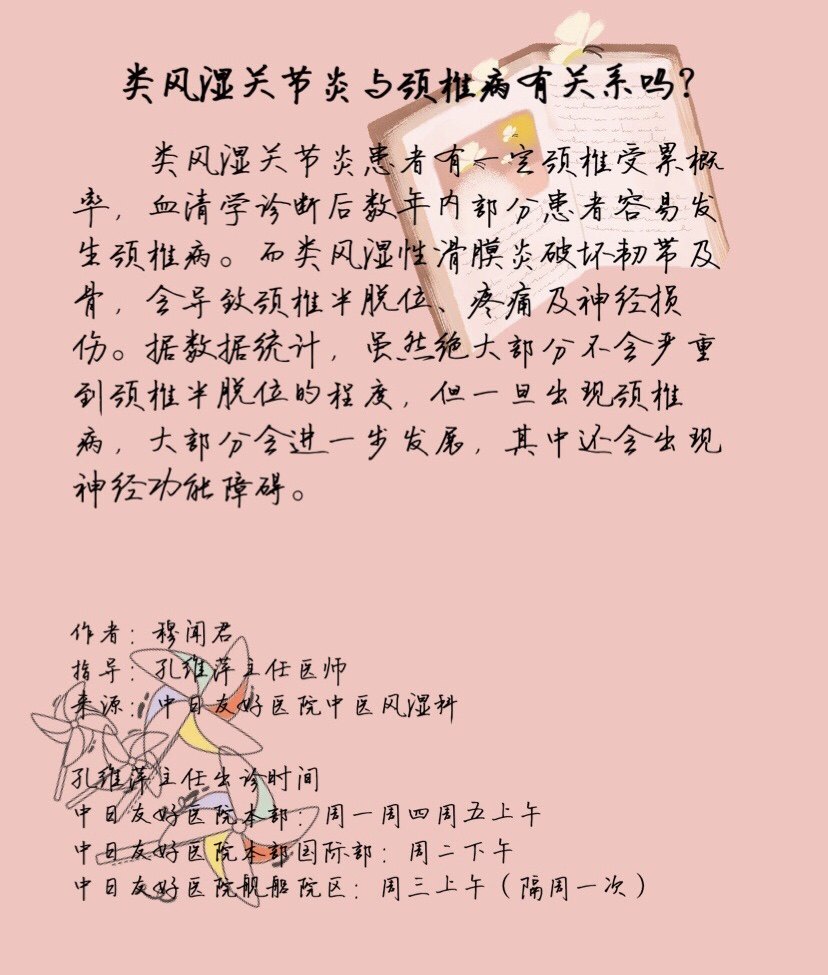 类风湿关节炎与颈椎病有关系吗？
类风湿关节炎患者有一定颈椎受累概
率，血清学诊断后数年内部分患者容易发
生颈椎病。而类风湿性滑膜炎破坏韧带及
骨，会导致颈椎半脱位、疼痛及神经损
伤。据数据统计，虽然绝大部分不会严重
到颈椎半脱位的程度，但一旦出现颈椎
病，大部分会进一步发展，其中还会出现
神经功能障碍。
作者：穆闻君
指导：孔维萍主任医师
来源：中日友好医院中医风湿科
孔维萍主任出诊时间
中日友好医院本部：周一周四周五上午
中日友好医院本部国际部：周二下午
中日友好医院舰船院区：周三上午（隔周一次）